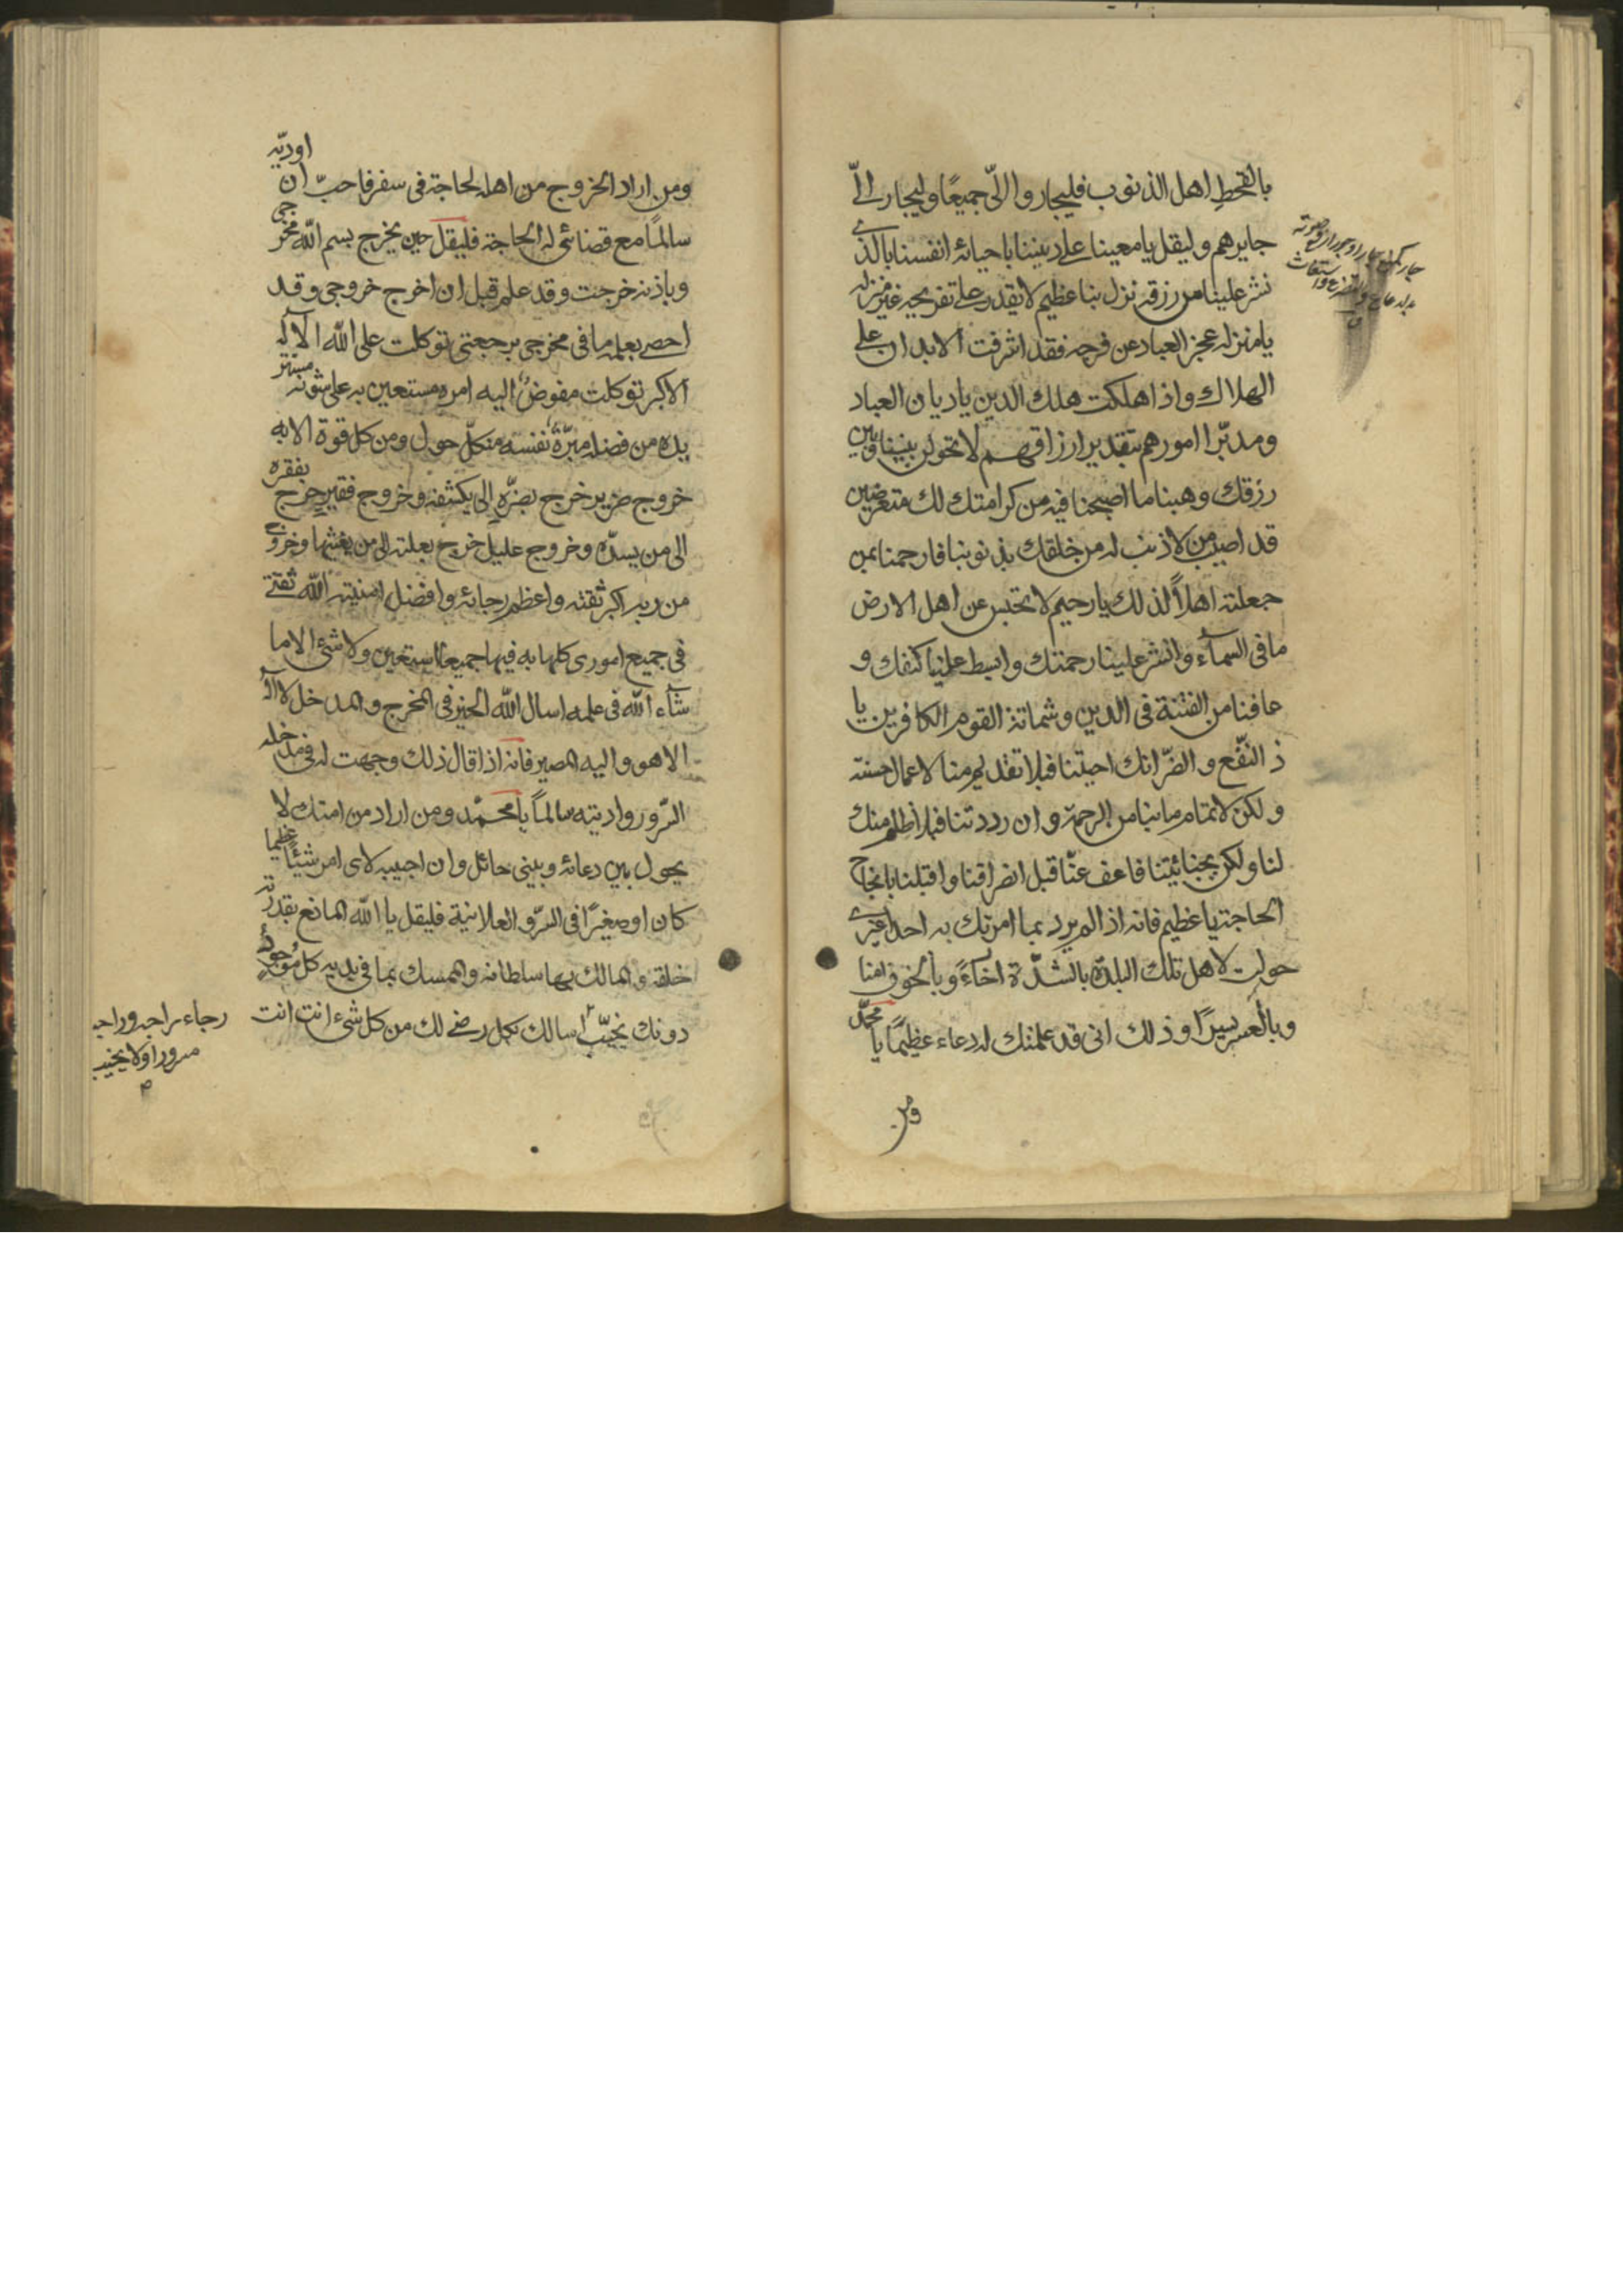 بالقحط اهل الذنوب فليجاروا الىّ جميعًا وليجار الىّ
جايرهم وليقل يا معيننا على ديننا باحيائه انفسنا بالذى
نشر علينا من رزقه نزل بنا عظيم لا يقدر على تفريجه غير منزله
يا منزله عجز العباد عن فرجه فقد اشرفت الابدان على
الهلاك واذا هلكت هلك الدين يا ديان العباد
ومدبّر امورهم بتقدير ارزاقهم لا تحولن بيننا وبين
رزقك وهبنا ما اصبحنا فيه من كرامتك لك متعرضين
قد اصيب من لا ذنب له من خلقك بذنوبنا فارحمنا بمن
جعلته اهلاً لذلك يا رحيم لا تحبس عن اهل الارض
ما فى السماء وانشر علينا رحمتك وابسط علينا كنفك و
عافنا من الفتنة فى الدين وشماتة القوم الكافرين يا
ذ النّفع و الضّر انك احيتنا فبلا تقديم منا لاعمال حسنة
ولكن لاتمام ما بنا من الرحمة وان رددتنا فبلا ظلم منك
لنا ولكن بجنايتنا فاعف عنّا قبل انصرافنا واقبلنا بانجاح
الحاجة يا عظيم فانه اذا لم يرد بما امرتك به احدا غيرى
حولت لاهل تلك البلدة بالشدّة رخاءً وبالخوف امنا
وبالعسر يسرًا وذلك انى قد علمتك له دعاء عظيمًا يا محمّد
ومن
ومن اراد الخروج من اهله لحاجة فى سفر فاحبّ ان اودّيه
سالمًا مع قضائى له الحاجة فليقل حين يخرج بسم الله مخرجى
وباذنه خرجت وقد علم قبل ان اخرج خروجى وقد
احصى بعلمه ما فى مخرجى برجعتى توكلت على الله الاله
الاكبر توكلت مفوض اليه امره مستعين به على شؤنه مستزيد
يده من فضله مبرّء نفسه من كلّ حول ومن كل قوة الا به
خروج ضرير خرج بضرّه الى يكشفه وخروج فقير خرج بفقره
الى من يسدّه وخروج عليل خرج بعلته الى من يغشها وخروج
من ربه اكبر ثقته واعظم رجائه وافضل امنيته الله ثقتى
فى جميع امورى كلها به فيها جميعا استعين ولا شئ الا ما
شاء الله فى علمه اسال الله الخير فى المخرج والمدخل لا اله
الا هو واليه المصير فانه اذا قال ذلك وجهت له فى مدخله
السّرور واديته سالمًا يا محمّد ومن اراد من امتك لا
يحول بين دعائه وبينى حائل وان اجيبه لاى امر شيئًا عظيما
كان او صغيرًا فى السّر والعلانية فليقل يا الله المانع بقدرته
خلقه والمالك بها سلطانه والممسك بما فى يديه كل موجود
دونك يخيّب اسالك بكل رضى لك من كل شىء انت انت
رجاء راجيه وراجيه
مسرور او لا يخيب